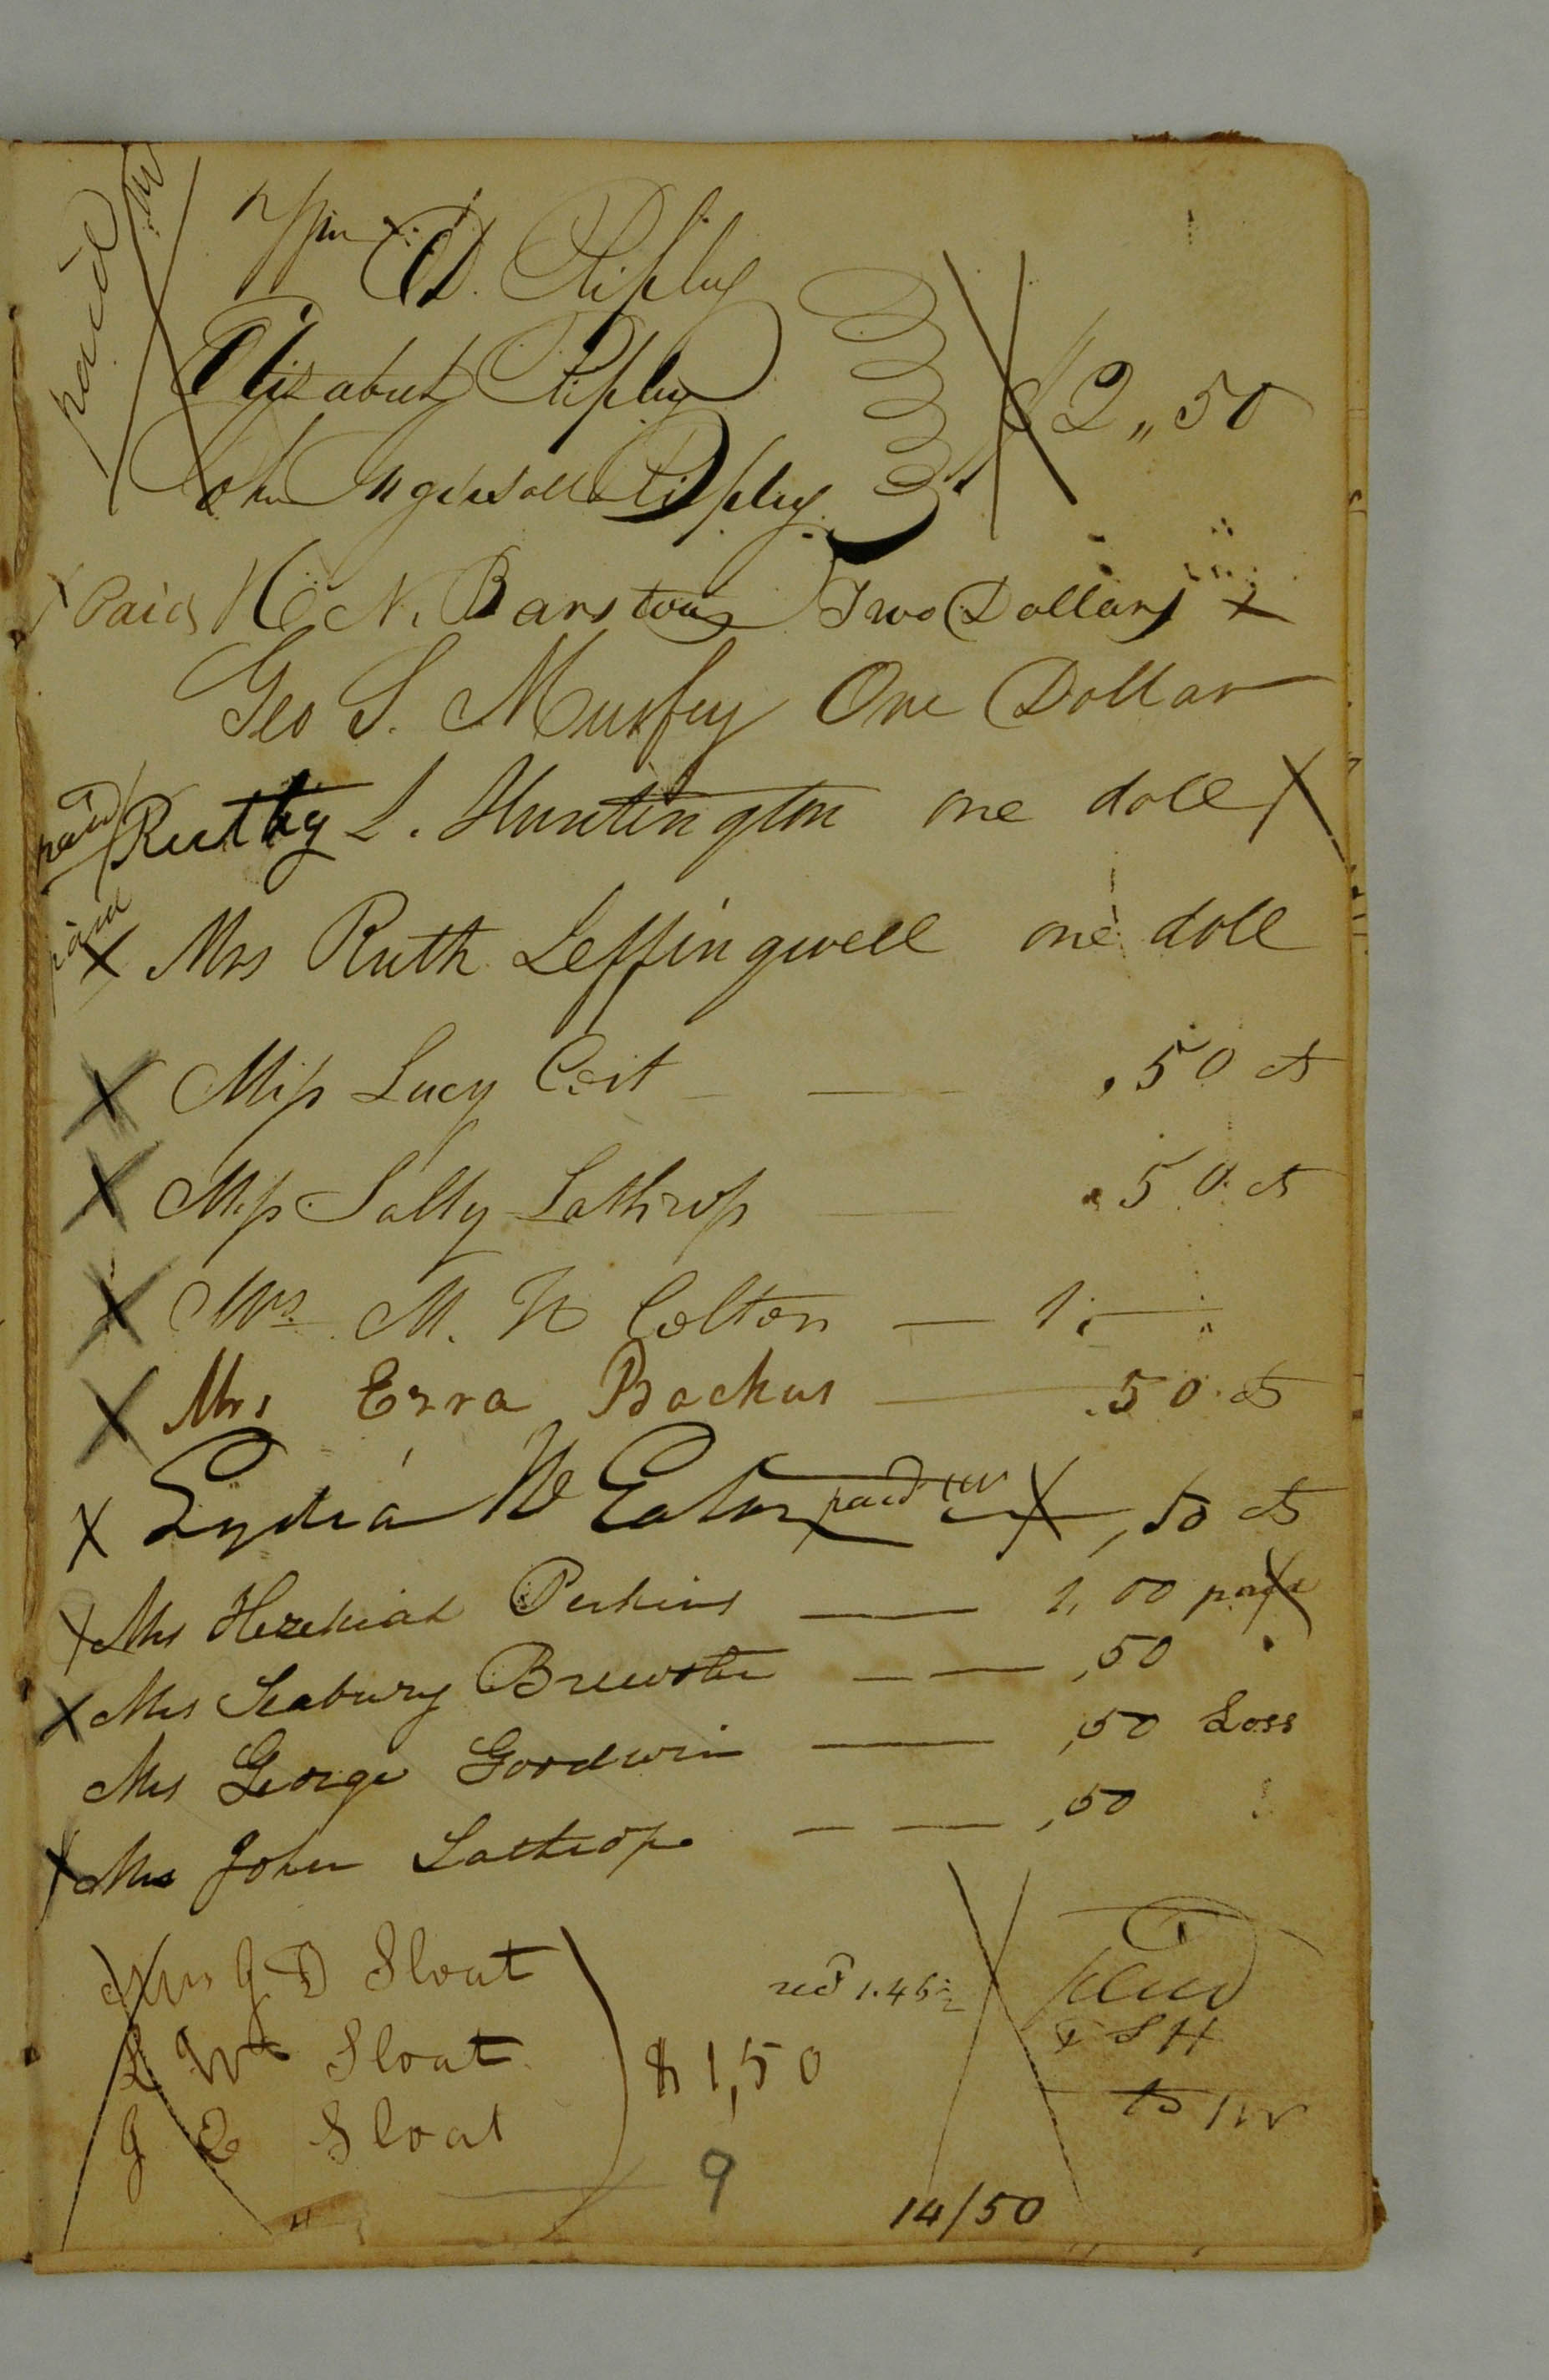 paid
D. Ripley
Elizabeth Ripley $2,,50
John Ingersoll Ripley
Paid H N. Barstow Two Dollars X
Geo S. Murfey One Dollar
paid Ruthy L. Huntington one doll X
paid
X Mrs Ruth Leffingwell one doll
X Miss Lucy Coit ,50 cts
X Miss Sally Lathrop .50 cts
X Mrs. M. W Colton — 1.—
X Mrs Ezra Backus — .50 cts
X Lydia W Eaton paid X ,50 cts
X Mrs Hezekiah Perkins — 1,00 paid
X Mrs Seabury Brewster — — ,50
Mrs George Goodwin — ,50 Loss
X Mrs John Lathrop — — ,50
Mrs J D Sloat
L W Sloat $1,50
J Sloat
recd 1.46½
paid
S H
to
9
14/50